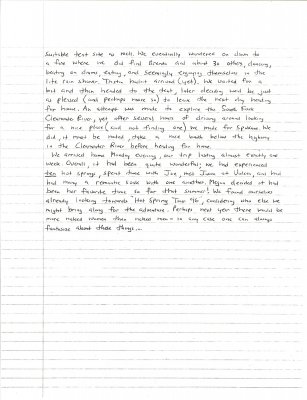 Suitable tent site as well. We eventually wandered on down to
a fire where we did find Brenda and about 30 others, dancing,
beating on drums, eating, and seemingly enjoying themselves in the
late rain shower. Justin hadn't around (yet). We waited for a
bit and then headed to the tent, later deciding we'd be just
as pleased (and perhaps more so) to leave the next day heading
for home. An attempt was made to explore the South Fork
Clearwater River, yet after several hours of driving around looking
for a nice place (and not finding one) we made for Spokane. We
did, it must be noted, take a nice bath below the highway
in the Clearwater River before heading for home.
We arrived home Monday evening, our trip lasting almost exactly one
week. Overall, it had been quite wonderful; we had experienced
ten hot springs, spent time with Joe, met at and had
had many a romantic soak with one another. decided it had
been her favorite time so far that summer! We found ourselves
already looking towards Hot Spring Tour 96, considering who else we
might bring along for the adventure. Perhaps next year there would be
more naked women than naked men - in any case one can always
fantasize about these things...